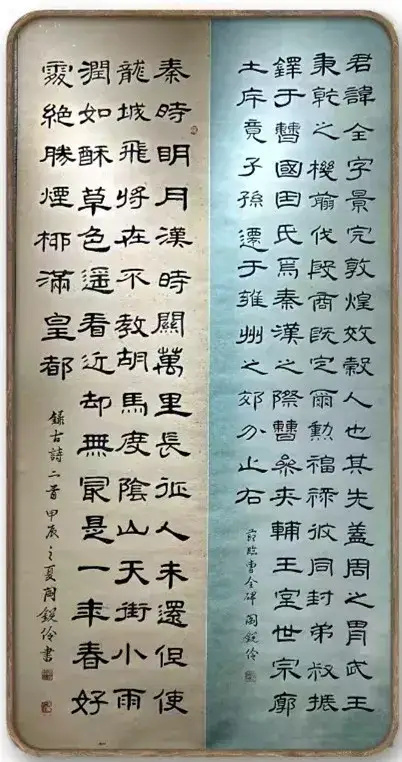 君諱全字景完敦煌效穀人也其先蓋周之胄武王
秉乾之機翦伐殷商既定爾勳福祿攸同封弟叔振
鐸于曹國因氏焉秦漢之際曹參夾輔王室世宗廓
土斥竟子孫遷于雍州之郊分止右
節臨曹全碑
秦時明月漢時關萬里長征人未還但使
龍城飛將在不教胡馬度陰山天街小雨
潤如酥草色遙看近却無最是一年春好
處絕勝煙柳滿皇都
錄古詩二首甲辰之夏 書